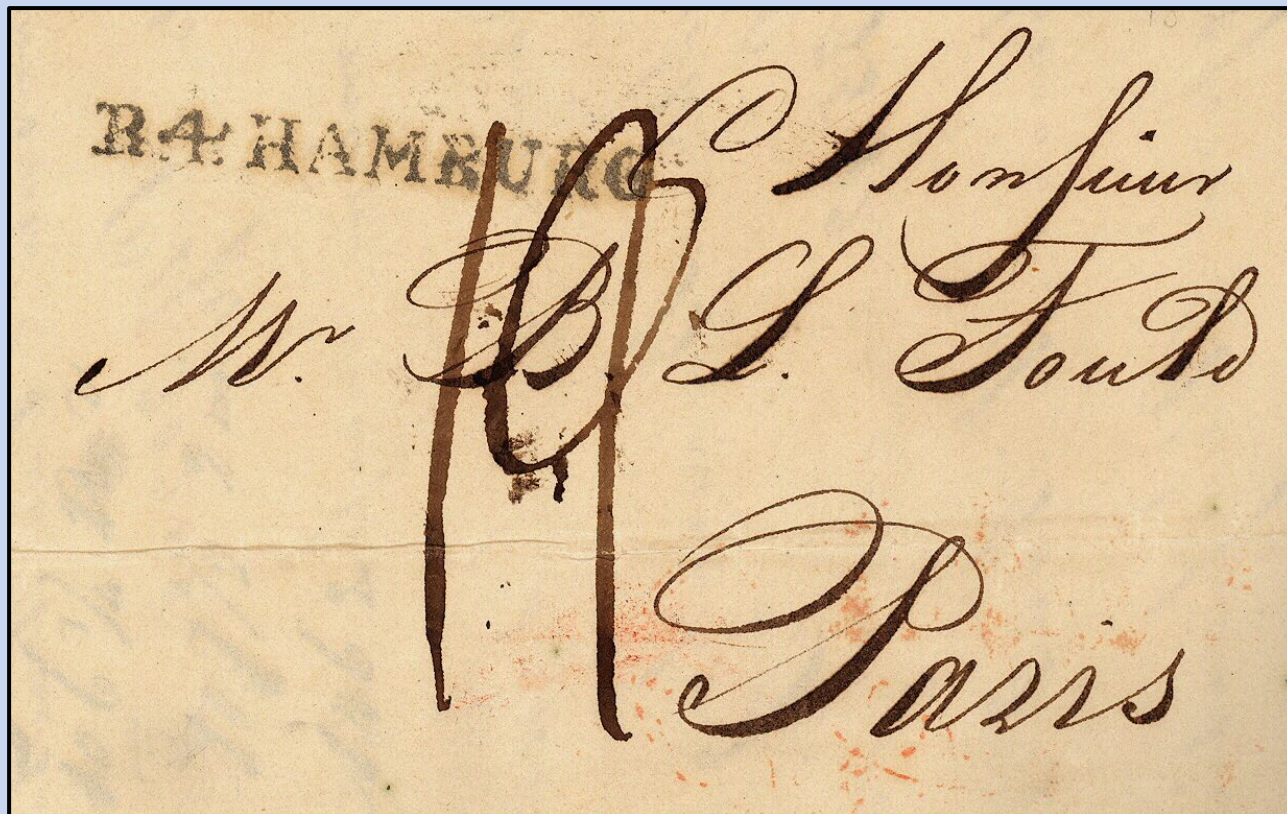 R.4. HAMBURG
Monsieur
Mr. B. L. Fould
19
Paris